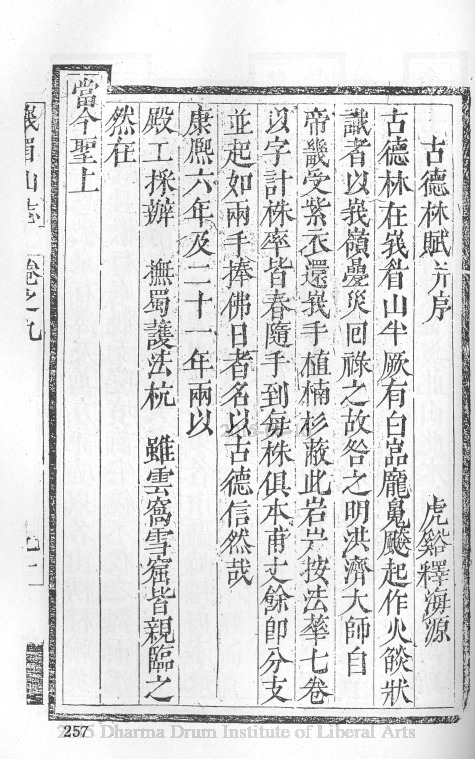 古德林賦并序
虎谿釋海源
古德林在峩眉山半厥有白嵓龐嵬飈起作火燄狀
識者以峩嶺疊災回祿之故咎之明洪濟大師自
帝畿受紫衣還峩手植楠杉蔽此岩岸按法華七卷
以字計株率皆春隨手到每株俱本甫丈餘卽分支
並起如兩手捧佛日者名以古德信然哉
康熈六年及二十一年兩以
殿工採辦 撫蜀護法杭 雖雲窩雪窟皆親臨之
然在
當今聖上
峩眉山志 卷之九
257
2015 Dharma Drum Institute of Liberal Arts